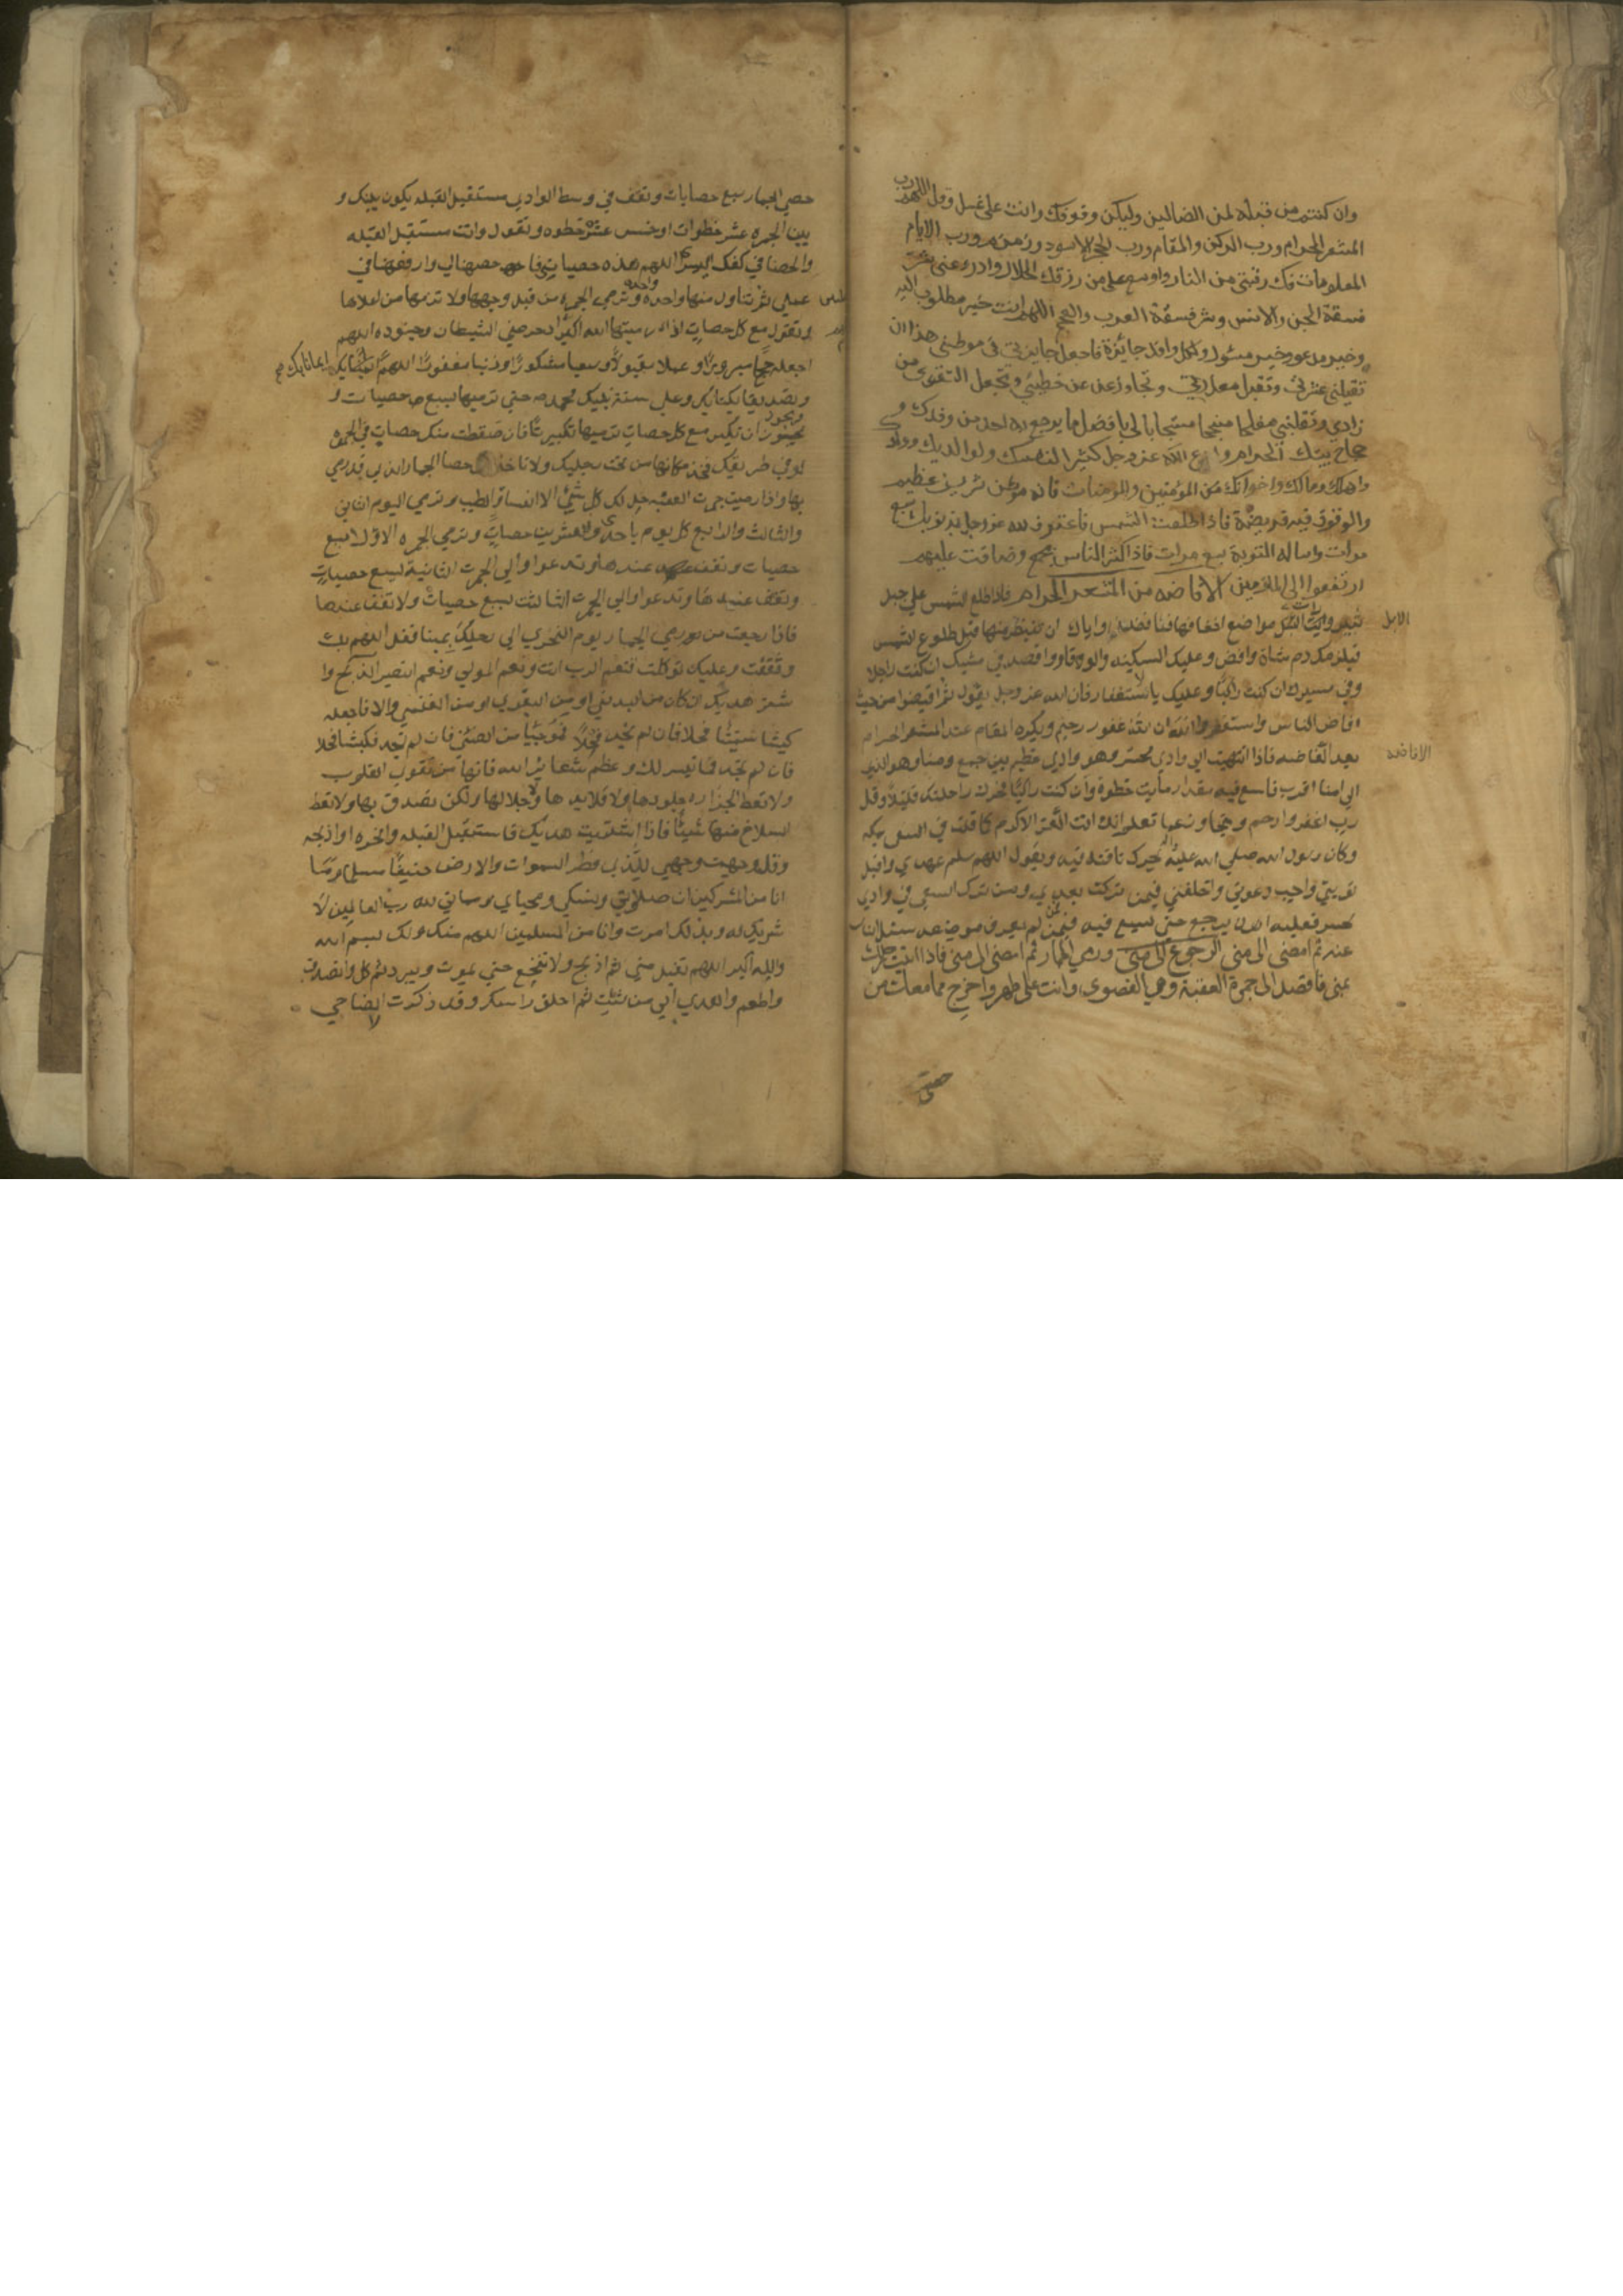 وان كنتم من قبله لمن الضالين وليكن وقوفك وانت على غسل وقل اللهم رب
المشعر الحرام ورب الركن والمقام ورب الحجر الاسود وزمزم ورب الايام
المعلومات فك رقبتي من النار واوسع علي من رزقك الحلال وادرء عني شر
فسقة الجن والانس وشر فسقة العرب والعجم اللهم انت خير مطلوب اليه
وخير مدعو وخير مسئول ولكل وافد جائزة فاجعل جايزتي في موطني هذا ان
تقيلني عثرتي وتقبل معذرتي وتجاوز عن خطيئتي وتجعل التقوى من
زادي وتقلبني مفلحا منجحا مستجابا لي بافضل ما يرجع به احد من وفدك و
حجاج بيتك الحرام وادع الله عز وجل كثيرا لنفسك ولوالديك وولدك
واهلك ومالك واخوانك من المؤمنين والمومنات فانه موطن شريف عظيم
والوقوف فيه فريضة فاذا طلعت الشمس فاعترف لله عز وجل بذنوبك سبع
مرات واساله التوبة سبع مرات فاذا كثر الناس بجمع وضاقت عليهم
ارتفعوا الى المازمين الافاضه من المشعر الحرام فاذا طلع الشمس على جبل
ثبير ورات الابل مواضع اخفافها فافض واياك ان تفيض منها قبل طلوع الشمس
الابل
فيلزمك دم شاة وافض وعليك السكينه والوقار واقصد في مشيك ان كنت راجلا
وفي مسيرك ان كنت راكبا وعليك بالاستغفار فان الله عز وجل يقول ثم افيضوا من حيث
افاض الناس واستغفروا الله ان الله غفور رحيم ويكره المقام عند المشعر الحرام
بعد الافاضه فاذا انتهيت الى وادي محسر وهو وادي عظيم بين جمع ومنا وهو الذي
الافاضه
الى منا اقرب فاسع فيه مقدار مأيت خطوة وان كنت راكبا فحرك راحلتك قليلا وقل
رب اغفر وارحم وتجاوز عما تعلم انك انت الاعز الاكرم كما قلت في السعي بمكه
وكان رسول الله صلي الله عليه واله يحرك ناقته فيه ويقول اللهم سلم عهدي واقبل
توبتي واجب دعوتي واخلفني فيمن تركت بعدي ومن ترك السعي في وادي
محسر فعليه ان يرجع حتى يسعي فيه فمن لم يعرف موضعه سئل الناس
عنه ثم امضى الى منى الرجوع الى منى ورمي الجمار ثم امضى الى منى فاذا اتيت رحلك
بمنى فاقصد الى جمرة العقبة وهي القصوى وانت على طهر واخرج مما معك من
حصى
حصي الجمار سبع حصايات وتقف في وسط الوادي مستقبل القبله يكون بينك و
بين الجمره عشر خطوات او خمس عشرة خطوه وتقول وانت مستقبل القبله
والحصا في كفك اليسرى اللهم هذه حصياتي فاحصهن لي وارفعهن في
عملي ثم تتناول منها واحده وترمي الجمره من قبل وجهها ولا ترمها من اعلاها
وتقول مع كل حصاة اذا رميتها الله اكبر ادحر عني الشيطان وجنوده اللهم
اجعله حجا مبرورا وعملا مقبولا وسعيا مشكورا وذنبا مغفورا اللهم ايمانا بك
وتصديقا بكتابك وعلى سنة نبيك محمد صه حتي ترميها بسبع حصيات و
يجوز ان تكبر مع كل حصاة ترميها تكبيرة فان سقطت منك حصاة في الجمره
او في طريقك فخذ مكانها من تحت رجليك ولا تاخذ من حصا الجمار الذي قد رمي
بها واذا رميت جمرت العقبه حل لك كل شيء الا النساء والطيب وترمي اليوم الثاني
والثالث والرابع كل يوم باحدى والعشرين حصاة وترمي الجمره الاولا بسبع
حصيات وتقف عندها وتدعوا والي الجمرت الثانية بسبع حصيات
وتقف عندها وتدعوا والي الجمرت الثالثت بسبع حصيات ولا تقف عندها
فاذا رجعت من رمي الجمار يوم النحر الي رحلك بمنا فقل اللهم بك
وثقت وعليك توكلت فنعم الرب انت ونعم المولي ونعم النصير الذبح وا
شتر هديك ان كان من البدن او من البقر او من الغنم والا فاجعله
كبشا سمينا فحلا فان لم تجد فحلا فموجئا من الضئن فان لم تجد فكبشا فحلا
فان لم تجد فما تيسر لك وعظم شعائر الله فانها من تقوى القلوب
ولا تعط الجزار جلودها ولا قلايدها ولا جلالها ولكن تصدق بها ولا تعط
السلاخ منها شيئا فاذا اشتريت هديك فاستقبل القبله وانحره او اذبحه
وقل وجهت وجهي للذي فطر السموات والارض حنيفا مسلما وما
انا من المشركين ان صلاتي ونسكي ومحياي ومماتي لله رب العالمين لا
شريك له وبذلك امرت وانا من المسلمين اللهم منك ولك بسم الله
والله اكبر اللهم تقبل مني ثم اذبح ولا تنخع حتي يموت ويبرد ثم كل وتصدق
واطعم واهدي الي من شئت ثم احلق راسك وقد ذكرت الاضاحي